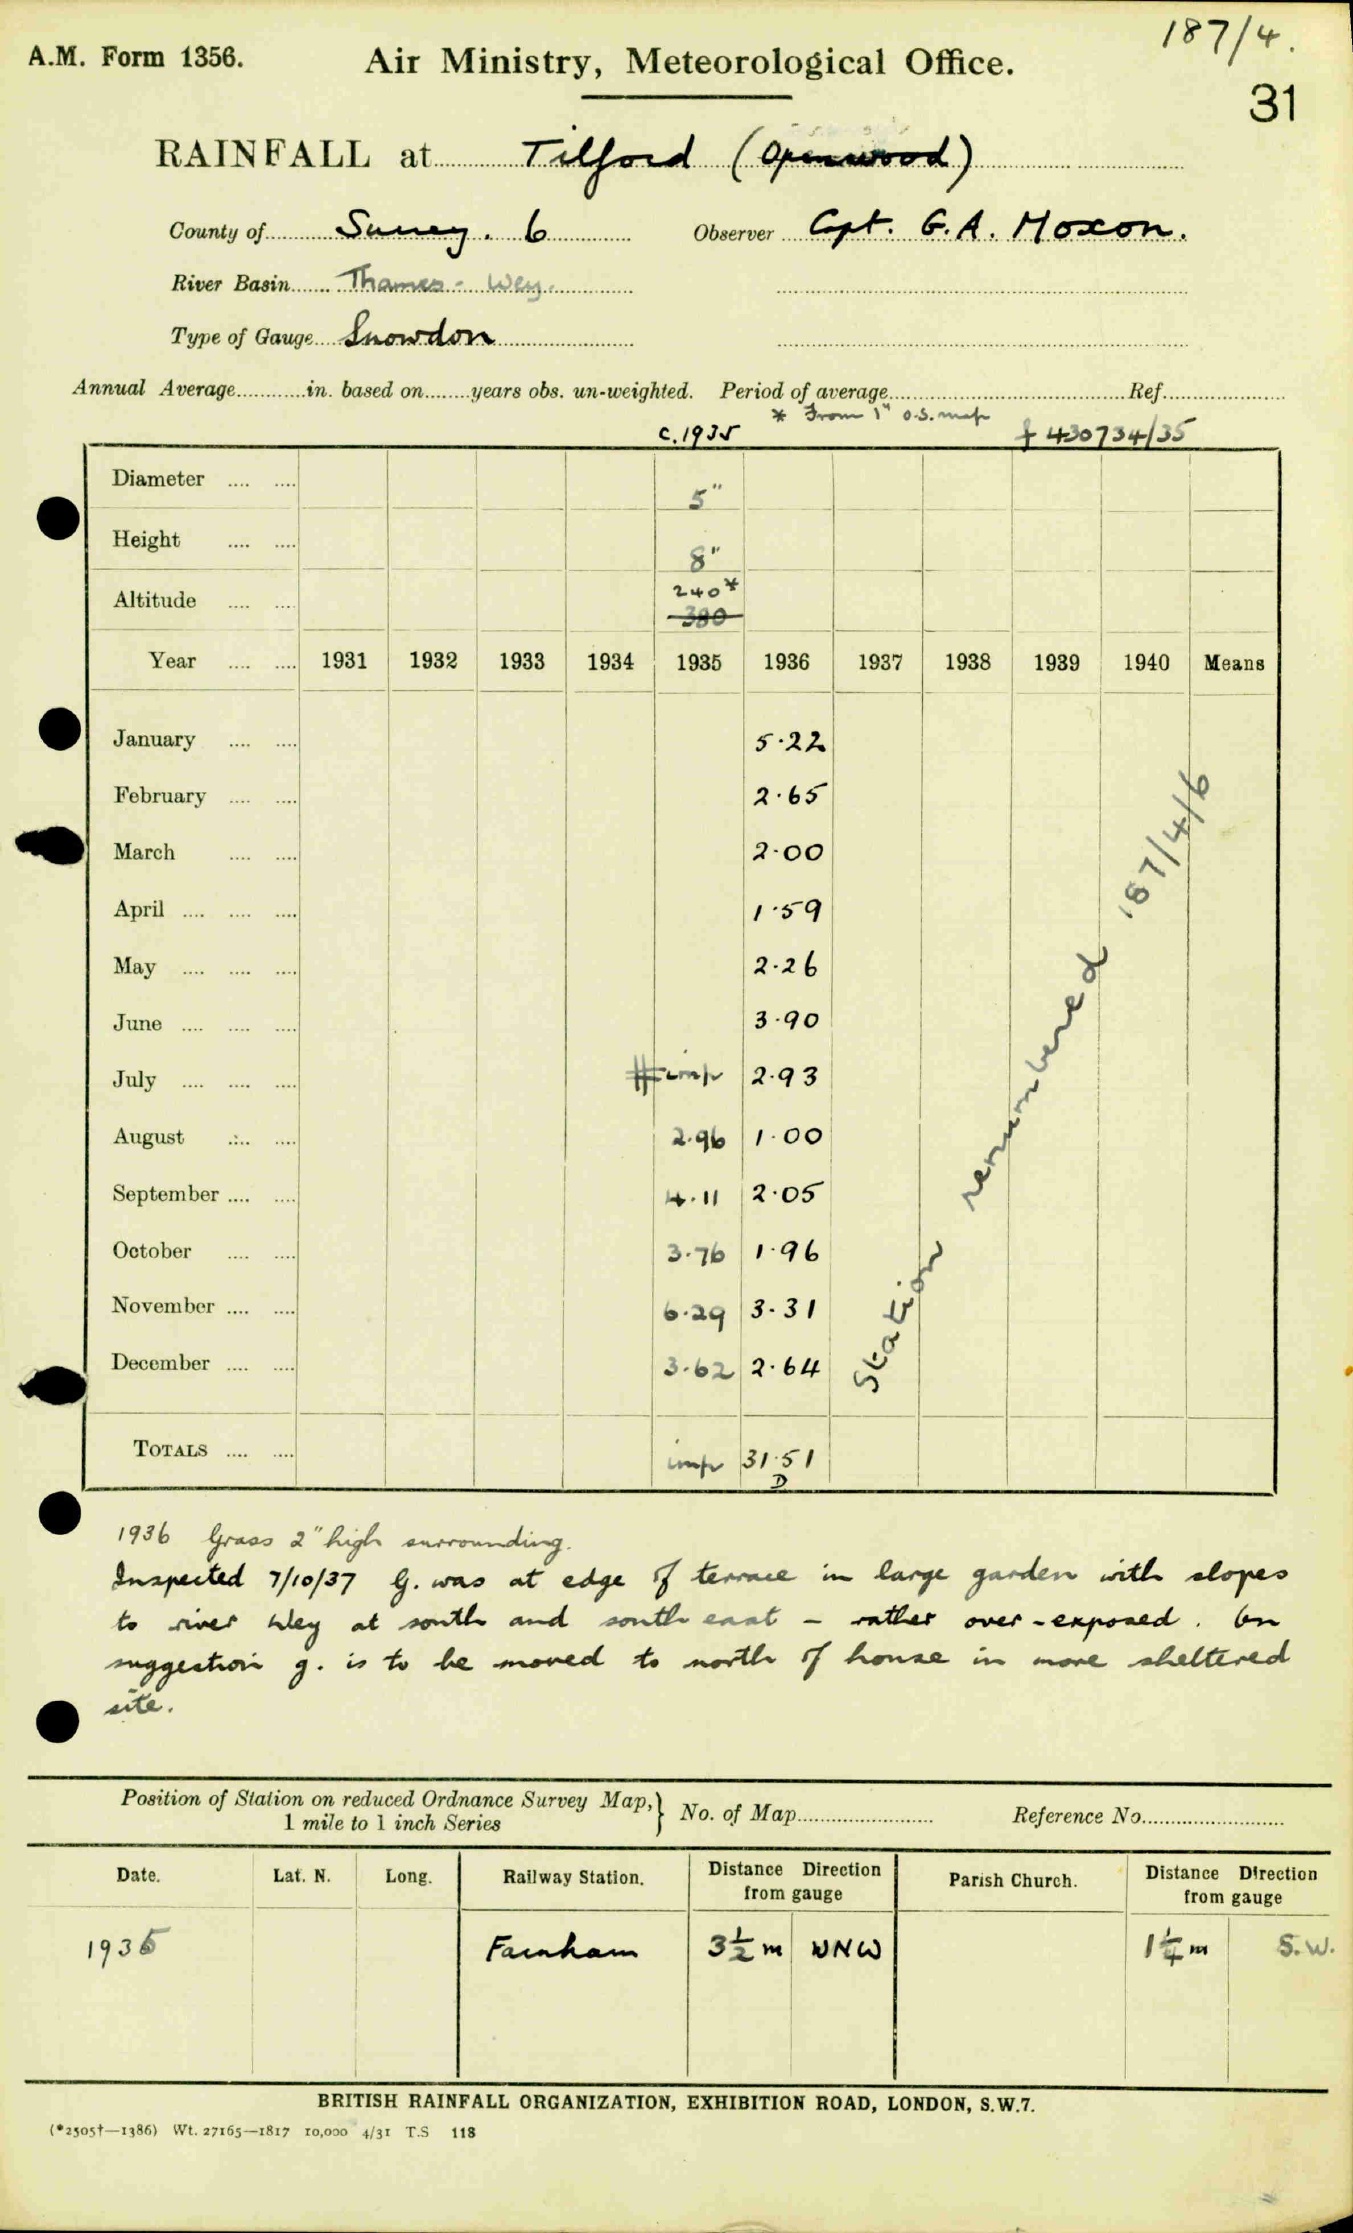 187/4.
A.M. Form 1356. Air Ministry, Meteorological Office.
31
RAINFALL at Tilford (Openwood)
County of Surrey. 6 Observer Capt. G.A. Moxon.
River Basin Thames - Wey.
Type of Gauge Snowdon
Annual Average in. based on years obs. un-weighted. Period of average Ref.
c.1935 * From 1" O.S. map f 430734/35
Diameter 5"
Height 8"
240*
Altitude 380
Year 1931 1932 1933 1934 1935 1936 1937 1938 1939 1940 Means
January 5.22
February 2.65
March 2.00
April 1.59
May 2.26
June 3.90
July # imp 2.93
August 2.96 1.00
September 4.11 2.05
October 3.76 1.96
November 6.29 3.31
December 3.62 2.64
Station renumbered 187/4/6
TOTALS imp 31.51
D
1936 Grass 2" high surrounding.
Inspected 7/10/37 G. was at edge of terrace in large garden with slopes
to river Wey at south and south east - rather over-exposed. On
suggestion g. is to be moved to north of house in more sheltered
site.
Position of Station on reduced Ordnance Survey Map,} No. of Map Reference No.
1 mile to 1 inch Series
Date. Lat. N. Long. Railway Station. Distance Direction Parish Church. Distance Direction
from gauge from gauge
1935 Farnham 3½ m WNW 1¼ m S.W.
BRITISH RAINFALL ORGANIZATION, EXHIBITION ROAD, LONDON, S.W.7.
(*2505†—1386) Wt. 27165—1817 10,000 4/31 T.S 118